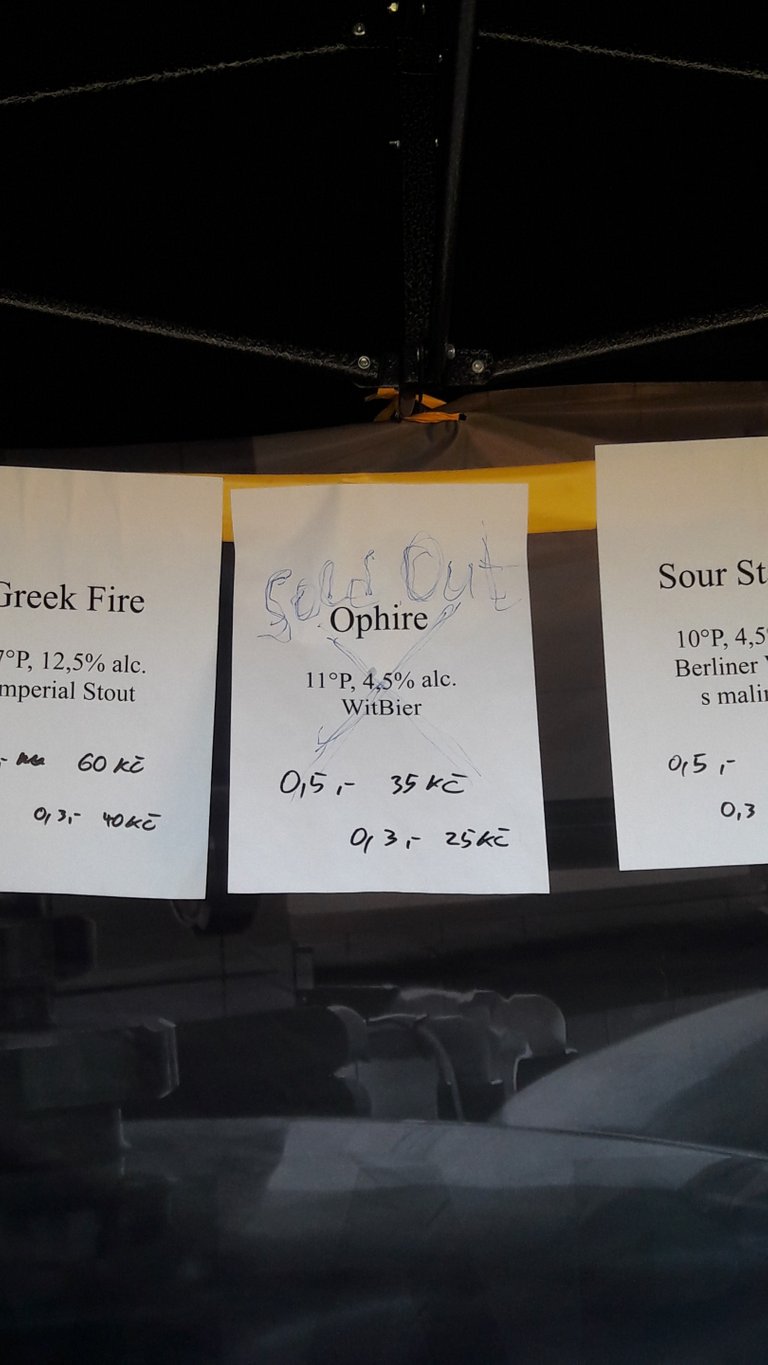 Greek Fire
7°P, 12,5% alc.
Imperial Stout
60 Kč
0,3,- 40 Kč
Sold Out
Ophire
11°P, 4,5% alc.
WitBier
0,5,- 35 Kč
0,3,- 25 Kč
Sour St
10°P, 4,5
Berliner
s malin
0,5,-
0,3